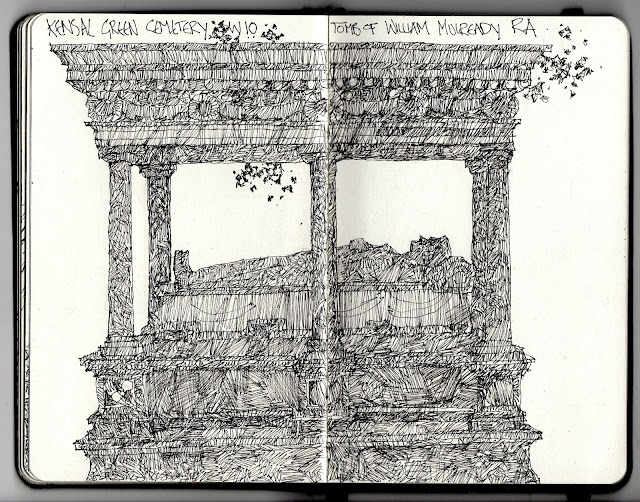 KENSAL GREEN CEMETERY NW10
TOMB OF WILLIAM MULREADY RA